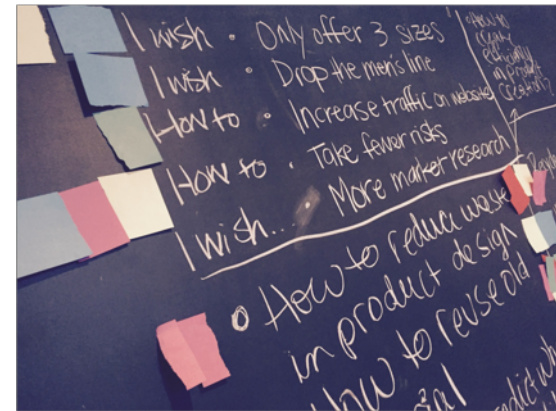 I wish • Only offer 3 sizes
I wish • Drop the men's line
How to • Increase traffic on website
How to • Take fewer risks
I wish... • More market research
• How to reduce waste
in product design
How to reuse old
How to
create
in product
creation